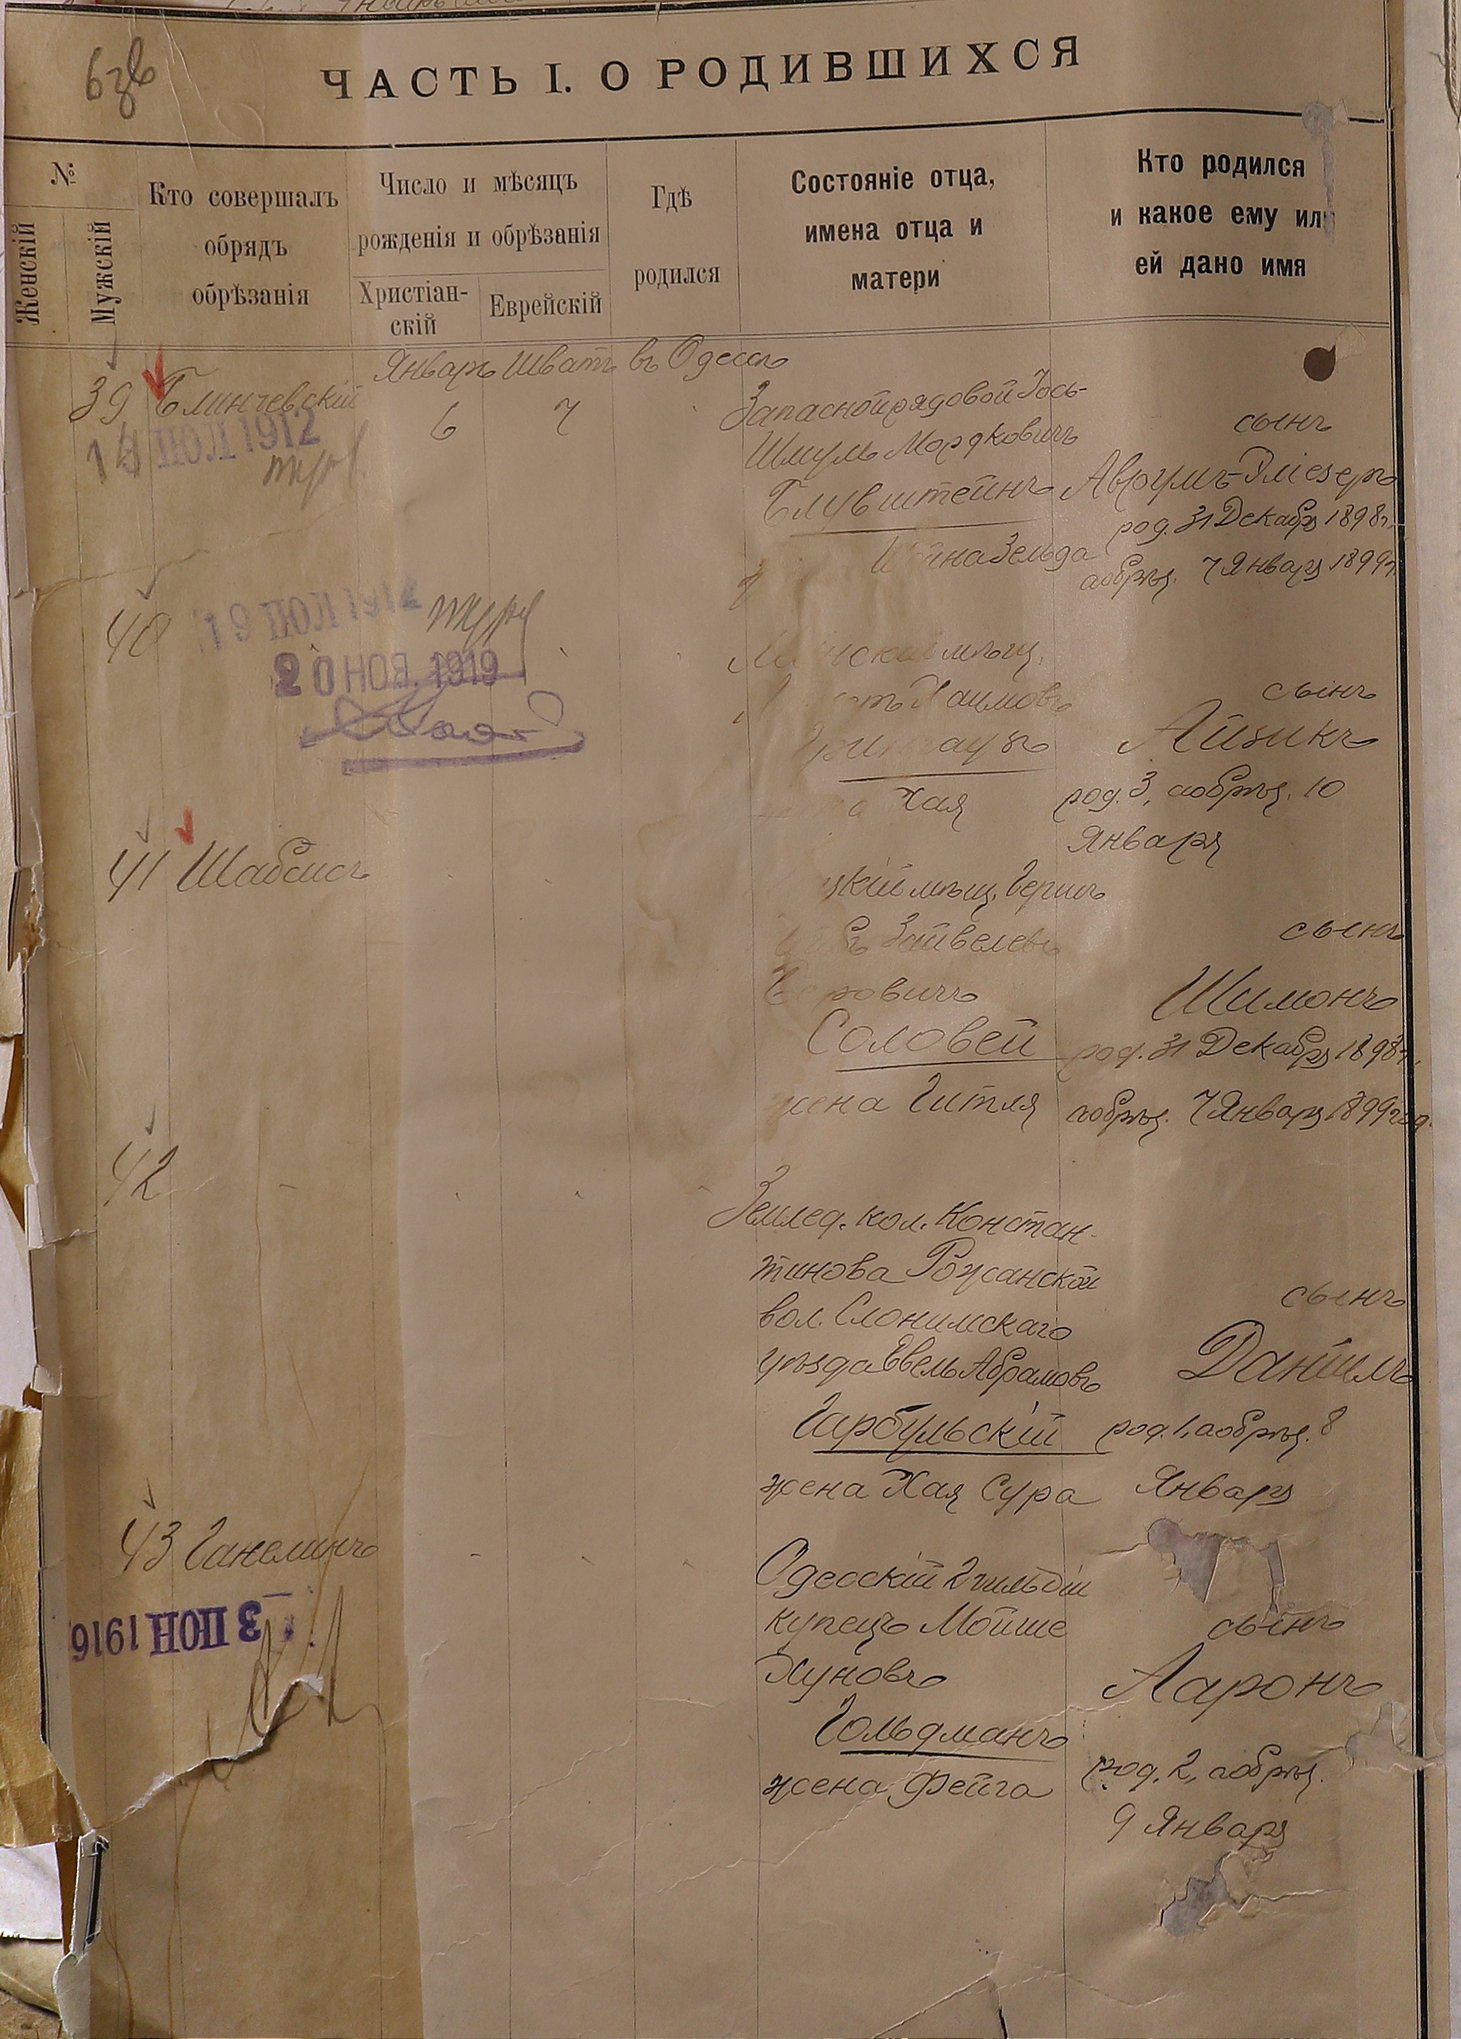 ЧАСТЬ I. О РОДИВШИХСЯ
№
Женскій
Мужскій
Кто совершалъ
обрядъ
обрѣзанія
Число и мѣсяцъ
рожденія и обрѣзанія
Христіан-
скій
Еврейскій
Гдѣ
родился
Состояніе отца,
имена отца и
матери
Кто родился
и какое ему или
ей дано имя
Январь Шватъ въ Одессѣ
39 Блинчевскій
6 7
Запасной рядовой Іось-
Шмуль Мордковичъ
Блувштейнъ
Зельда
сынъ
Аврумъ-Эліезеръ
род. 31 Декабр 1898 г.
а обрѣз. 7 Январ 1899 г.
19 ІЮЛ 1912
40
19 ІЮЛ 1912
20 НОЯ. 1919
мѣщ.
Хаимовъ
Хая
сынъ
Айзикъ
род. 3, а обрѣз. 10
Января
41 Шабсисъ
цкій мѣщ. Герш
Зайвелевъ
Беровичъ
Соловей
жена Гитля
сынъ
Шимонъ
род. 31 Декабр 1898 г.
а обрѣз. 7 Январ 1899 год.
42
Землед. кол. Констан-
тинова Рожанской
вол. Слонимскаго
уѣзда Евель Абрамовъ
Гарбульскій
жена Хая Сура
сынъ
Даніилъ
род. 1, а обрѣз. 8
Январ
43 Ганелинъ
3 ІЮН 1916
Одесскій 2 гильдіи
купецъ Мойше
Хуновъ
Гольдманъ
жена Фейга
сынъ
Ааронъ
род. 2, а обрѣз.
9 Январ